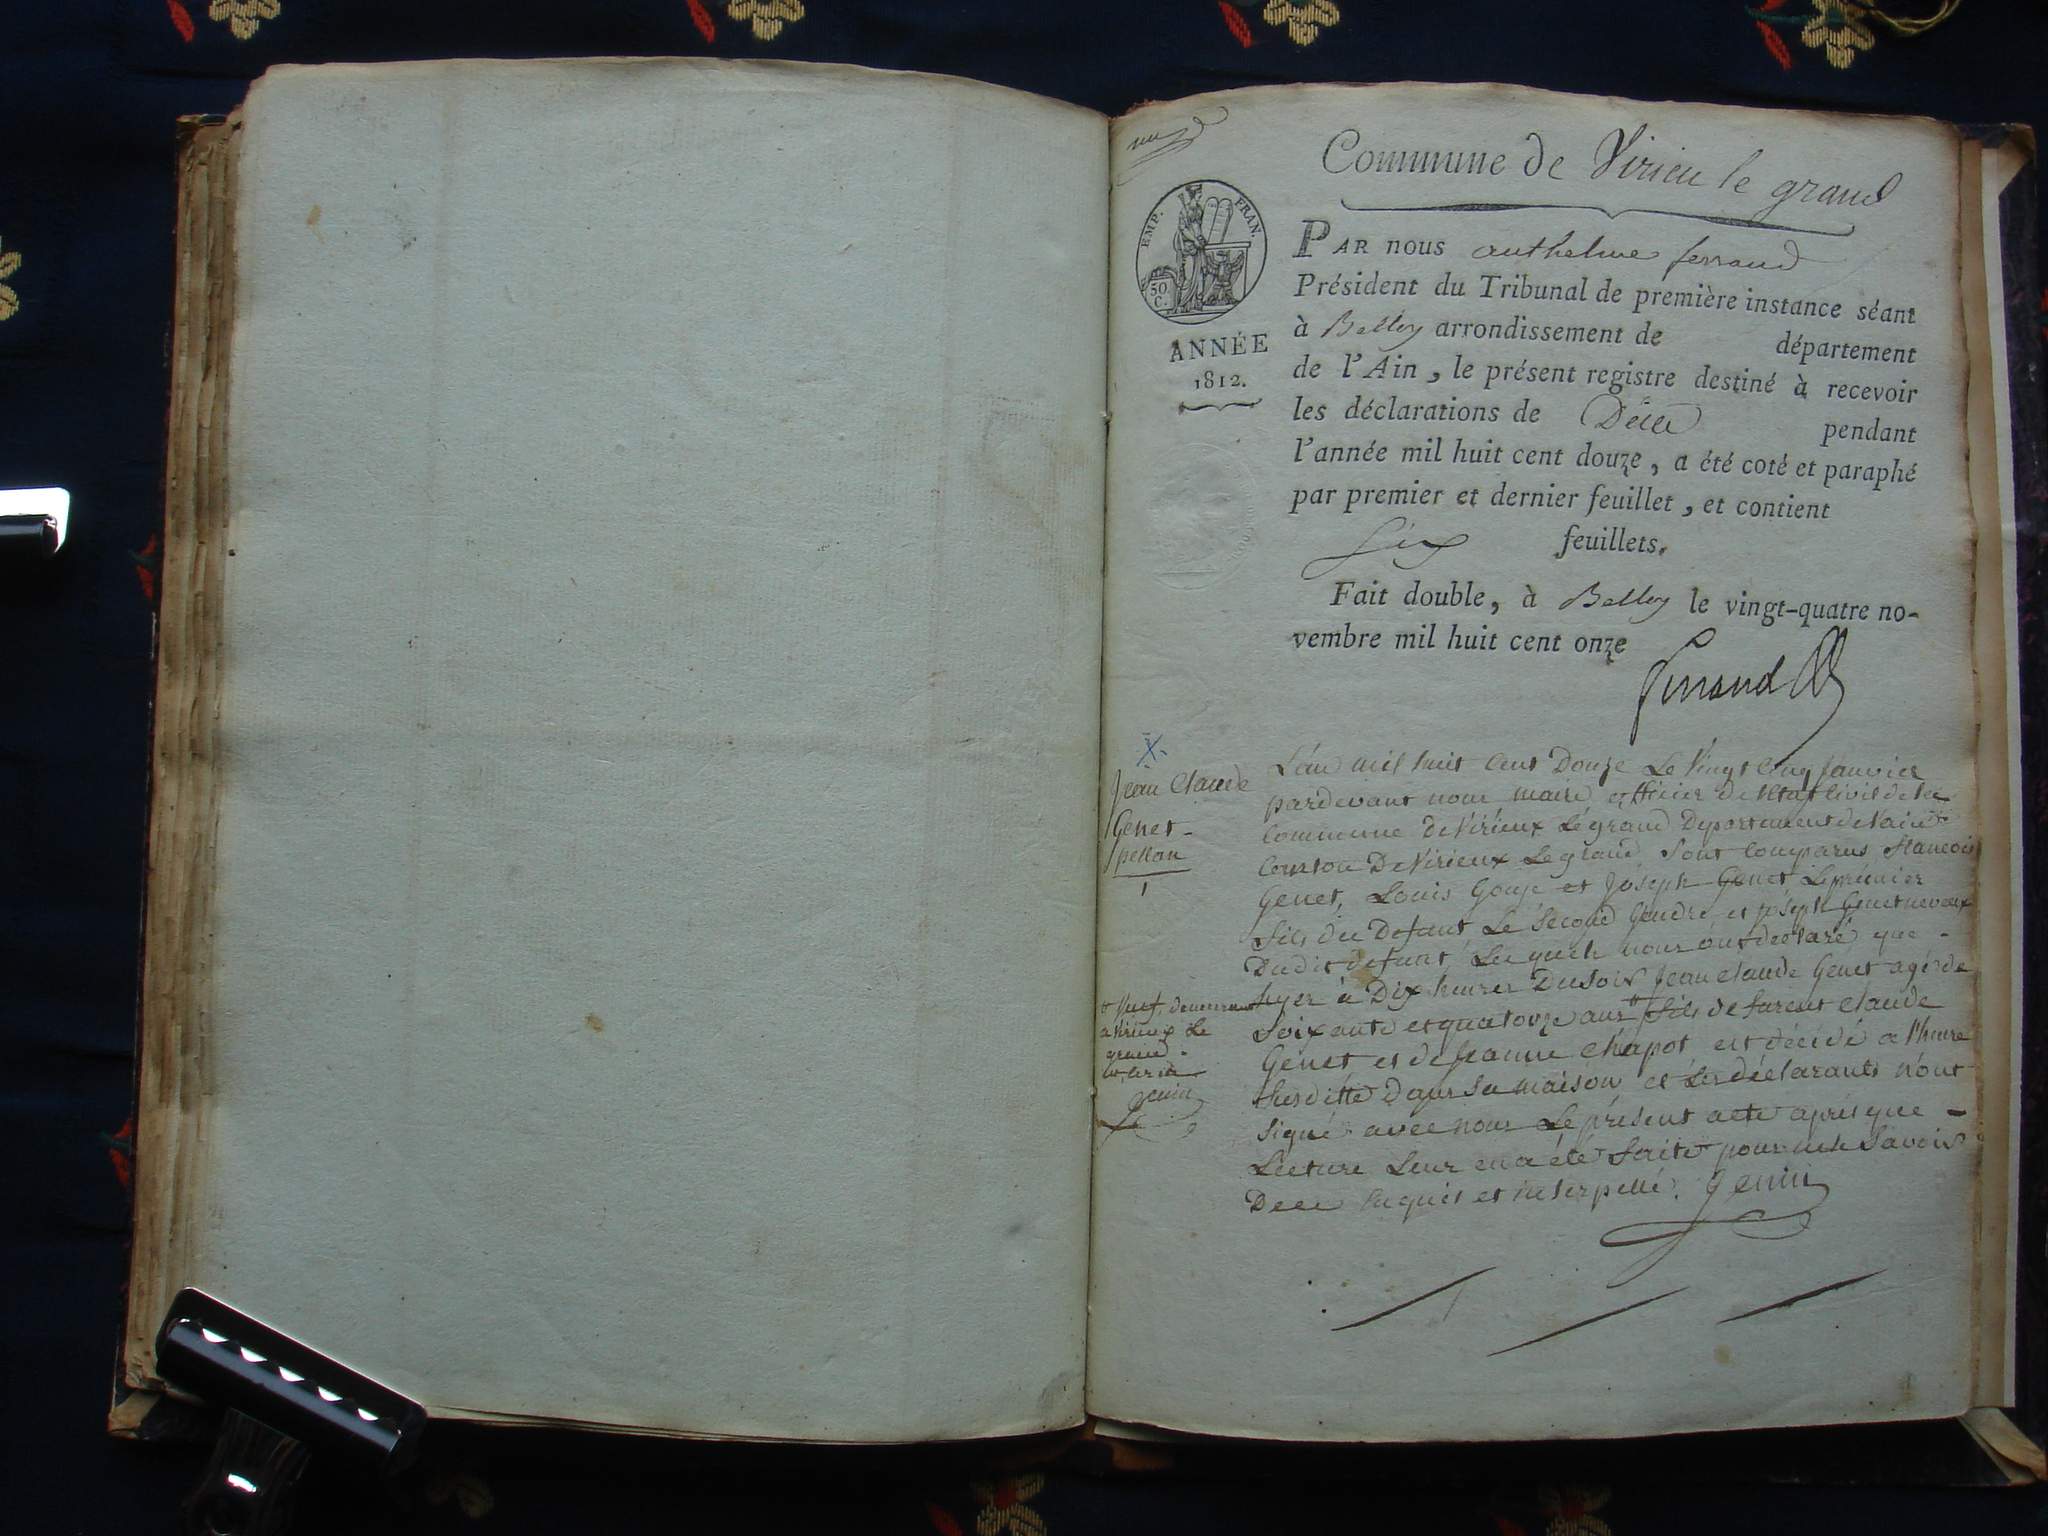 Commune de Virieu le grand
EMP. FRAN.
50
C.
ANNÉE
1812.
PAR nous anthelme ferrand
Président du Tribunal de première instance séant
à Belley arrondissement de département
de l'Ain, le présent registre destiné à recevoir
les déclarations de Décès pendant
l'année mil huit cent douze, a été coté et paraphé
par premier et dernier feuillet, et contient
Six feuillets.
Fait double, à Belley le vingt-quatre no-
vembre mil huit cent onze
ferrand
X
Jean Claude
Genet-
pellan
1
L'an mil huit Cent Douze Le Vingt Cinq Janvier
pardevant nous maire officier de l'état Civil de la
Commune de Virieux Le grand Departement de l'ain
Canton De Virieux Le grand, sont Comparus francois
Genet, Louis Gouje et Joseph Genet Le premier
fils du Defunt Le Second Gendre et joseph Genet neveux
Dudit defunt, Lesquels nous ont declaré que -
hyer à Dix heures Du soir Jean Claude Genet agé de
Soixante et quatorze ans # fils de furent Claude
Genet et de Jeanne Chapot, est décédé a l'heure
Susditte Dans Sa maison, et Les déclarants n'ont
signé avec nous Le présent acte après que -
Lecture Leur en a été faite pour ne le Savoir
De ce Enquis et interpellé. Genin
# Veuf, demeurant
a Virieux Le
grand.
Genin